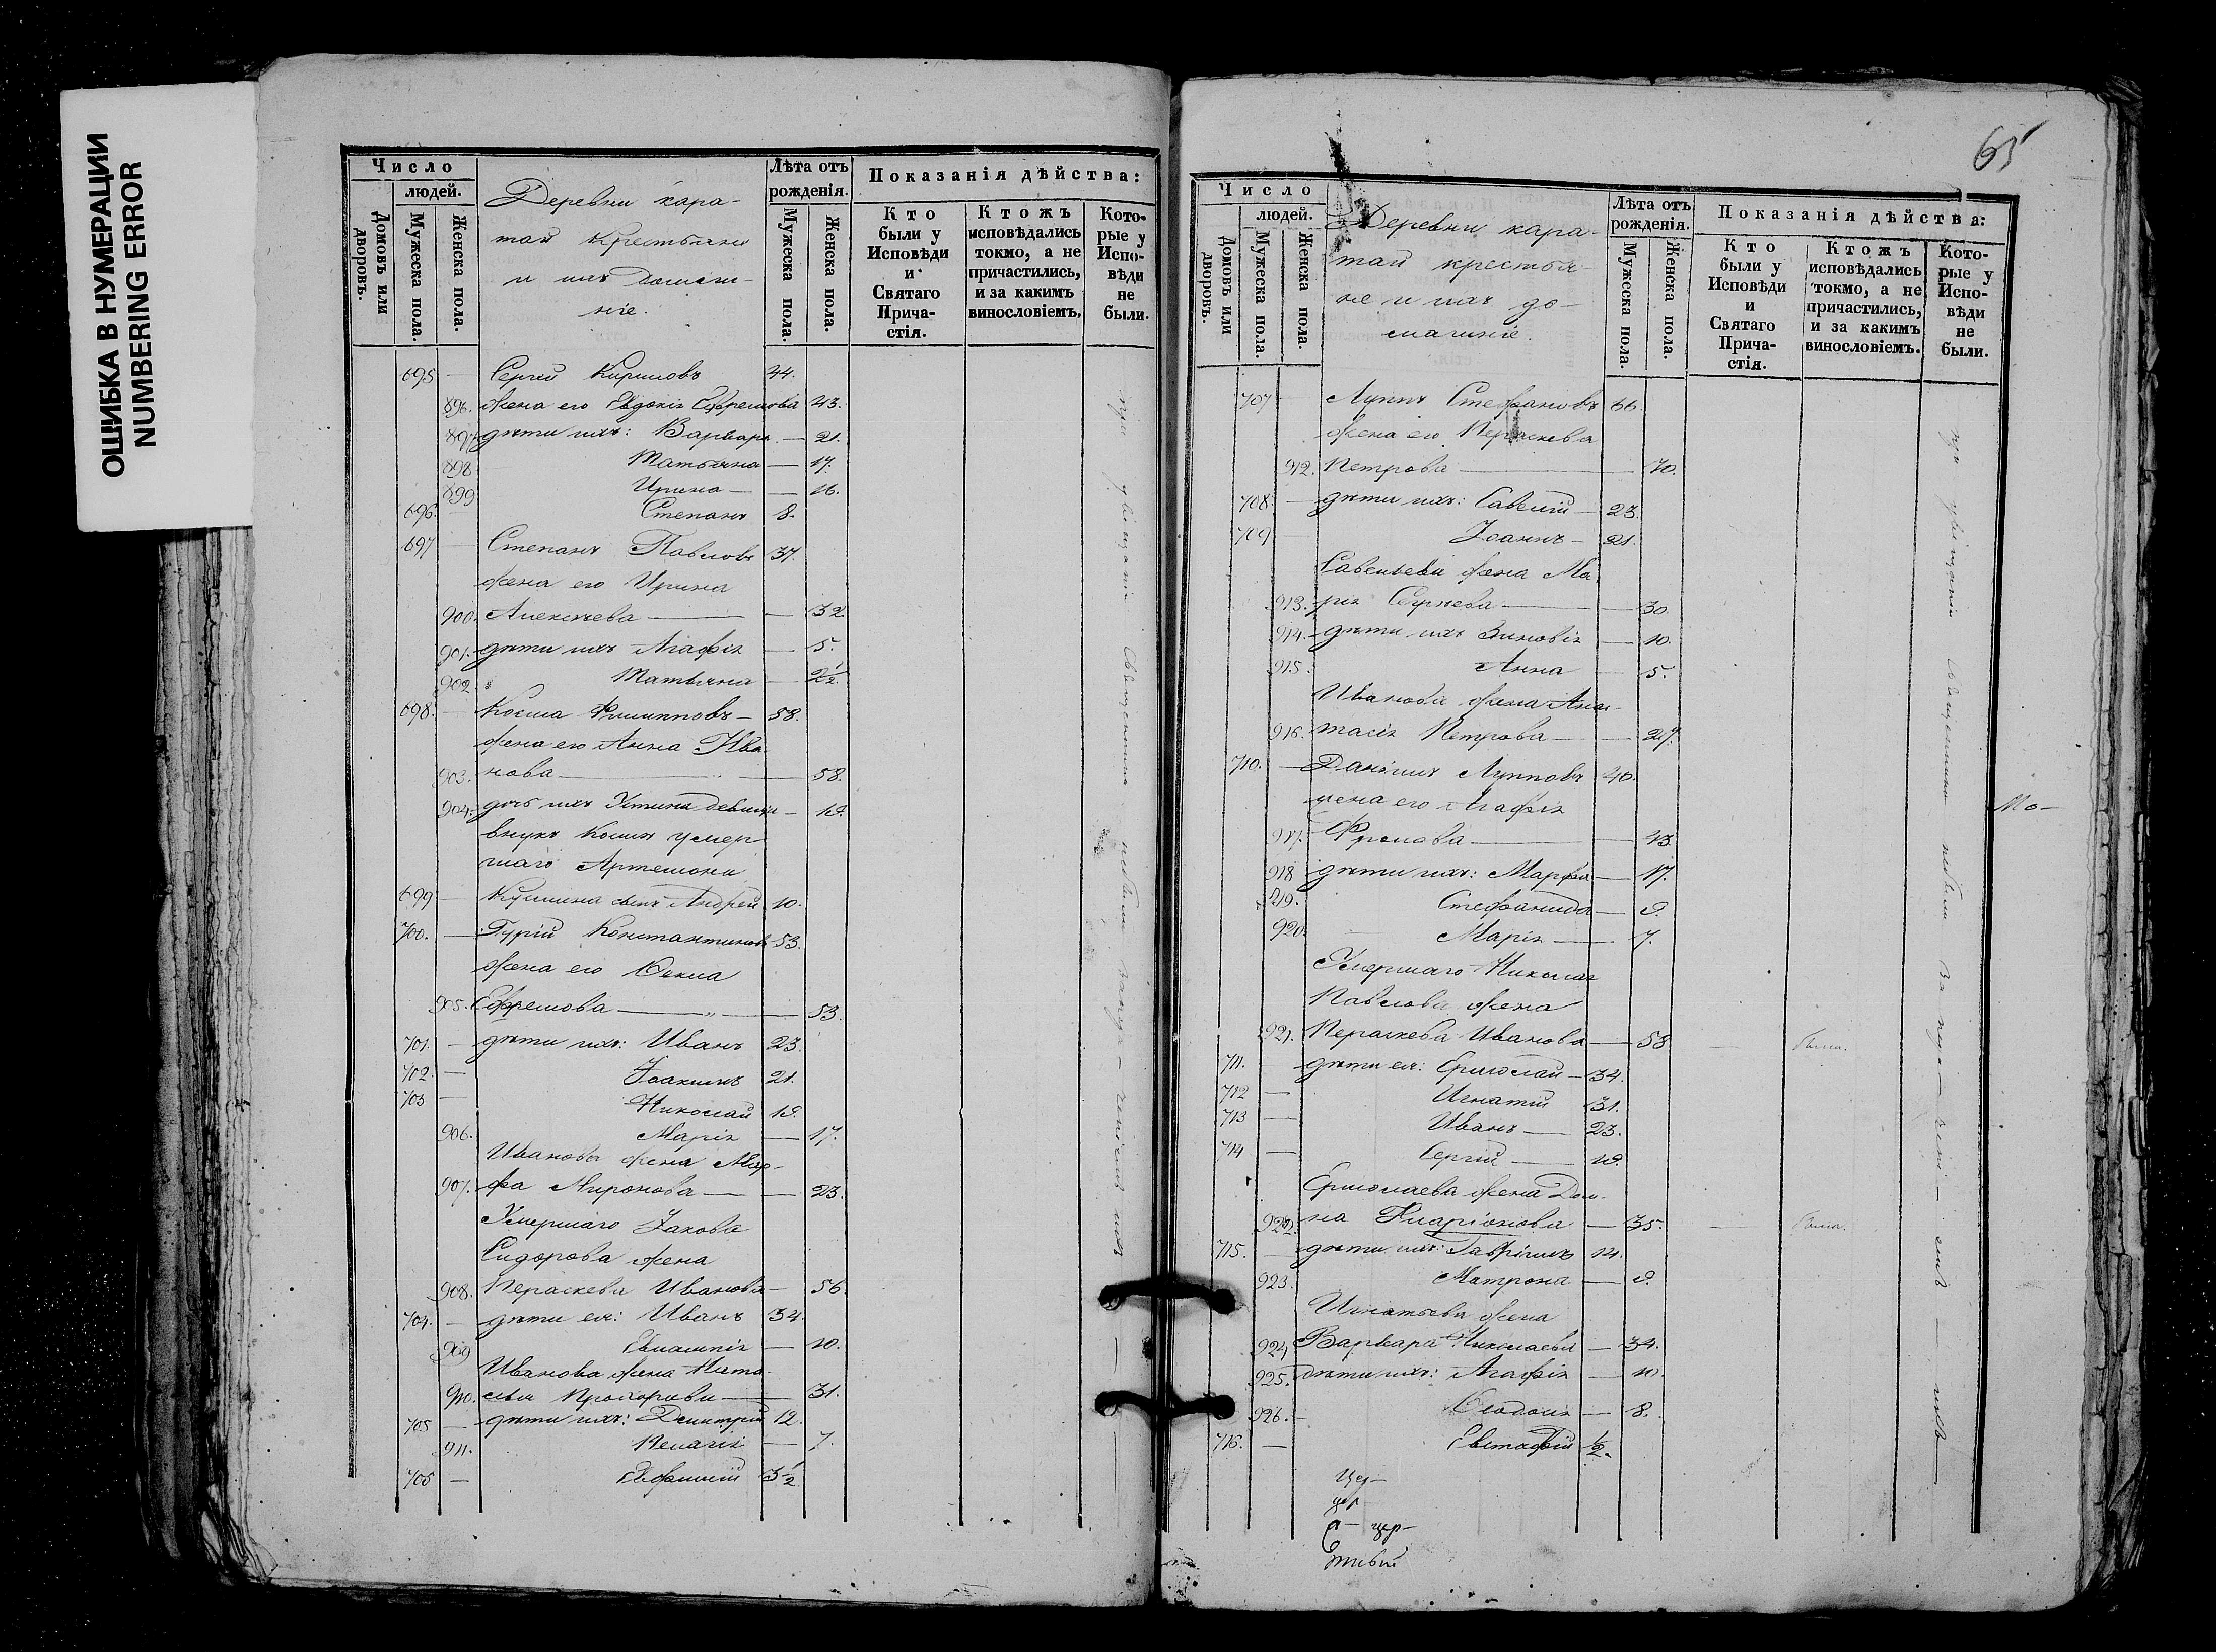 ОШИБКА В НУМЕРАЦИИ
NUMBERING ERROR
Число
людей.
Домовъ или дворовъ.
Мужеска пола.
Женска пола.
Деревни кара-
тай крестьяне
и ихъ домаш-
ніе.
Лѣта отъ рожденія.
Мужеска пола.
Женска пола.
Показанія дѣйства:
Кто были у Исповѣди и Святаго Прича-стія.
Ктожъ исповѣдались токмо, а не причастились, и за какимъ винословіемъ.
Кото-рые у Испо-вѣди не были.
695 — Сергей Кириловъ 44.
896. жена его Евдокія Ефремова 43.
897. дѣти ихъ: Варвара — 21.
898 Татьяна — 17.
899 Ирина — — 16.
696. — Степанъ 8.
697 — Степанъ Павловъ 37.
жена его Ирина
900. Алексѣева — — 32
901. дѣти ихъ Агафія — 5.
902 Татьяна — 2½
698. — Косма Филипповъ — 58.
жена его Анна Ива-
903. нова — — 58.
904. дочь ихъ Устинья девица — 19.
внукъ Космы умер-
шаго Артемона
699 — Кузмина сынъ Андрей 10.
700. — Гурій Константиновъ 53.
жена его Фекла
905. Ефремова — „ — 53.
701. — дѣти ихъ: Иванъ 23.
702. — Іоакимъ 21.
703 — Николай 19.
906. Марія — 17.
Иванова жена Мар-
907. фа Миронова — — 23.
Умершаго Іакова
Сидорова жена
908. Параскева Иванова — 56.
704. — дѣти ея: Иванъ 34.
909 Евлампія — 10.
Иванова жена Ната-
910. лья Прохорова — 31.
705 — дѣти ихъ: Димитрій 12.
911. Пелагія — 7.
706 — Ефимій 3½
при увѣщаніи Священника
65
Число
людей.
Домовъ или дворовъ.
Мужеска пола.
Женска пола.
Деревни кара-
тай крестья-
не и ихъ до-
машніе.
Лѣта отъ рожденія.
Мужеска пола.
Женска пола.
Показанія дѣйства:
Кто были у Исповѣди и Святаго Прича-стія.
Ктожъ исповѣдались токмо, а не причастились, и за какимъ винословіемъ.
Кото-рые у Испо-вѣди не были.
707 — Луппъ Стефановъ 66.
жена его Параскева
912. Петрова — — 70.
708. — дѣти ихъ: Савелій — 23.
709 — Іоаннъ — 21.
Савельева жена Ма-
913. рія Сергѣева — — 30.
914. дѣти ихъ Зиновія — 10.
915. Анна — 5.
Иванова жена Анас-
916. тасія Петрова — — 27.
710. — Даніилъ Лупповъ 40.
жена его Агафія
917. Фролова — — 43.
918 дѣти ихъ: Марфа — 17.
919. Стефанида — 9.
920. Марія — 7.
Умершаго Николая
Павлова жена
921. Параскева Иванова — 58 — была.
711. — дѣти ея: Ермолай — 34.
712 — Игнатій 31.
713 — Иванъ — 23.
714 — Сергій — 19.
Ермолаева жена Дом-
922. на Иларіонова — 35. — была.
715. — дѣти ихъ: Гавріилъ 14.
923. Матрона — 9.
Игнатьева жена
924. Варвара Николаева — 34.
925. дѣти ихъ: Агафія — 10.
926. — Феодосія — 8.
716. — Евстафій ½.
при увѣщаніи Священника